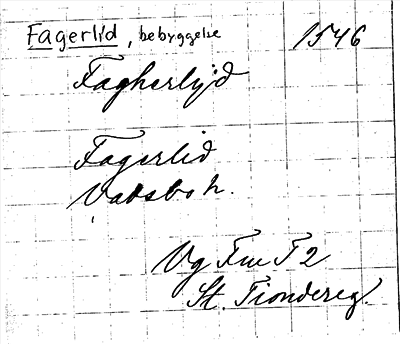 Fagerlid, bebyggelse 1546
Fagherlijd
Fagerlid
Vadsbo h.
Vg Fru T 2
St. Tiondereg.